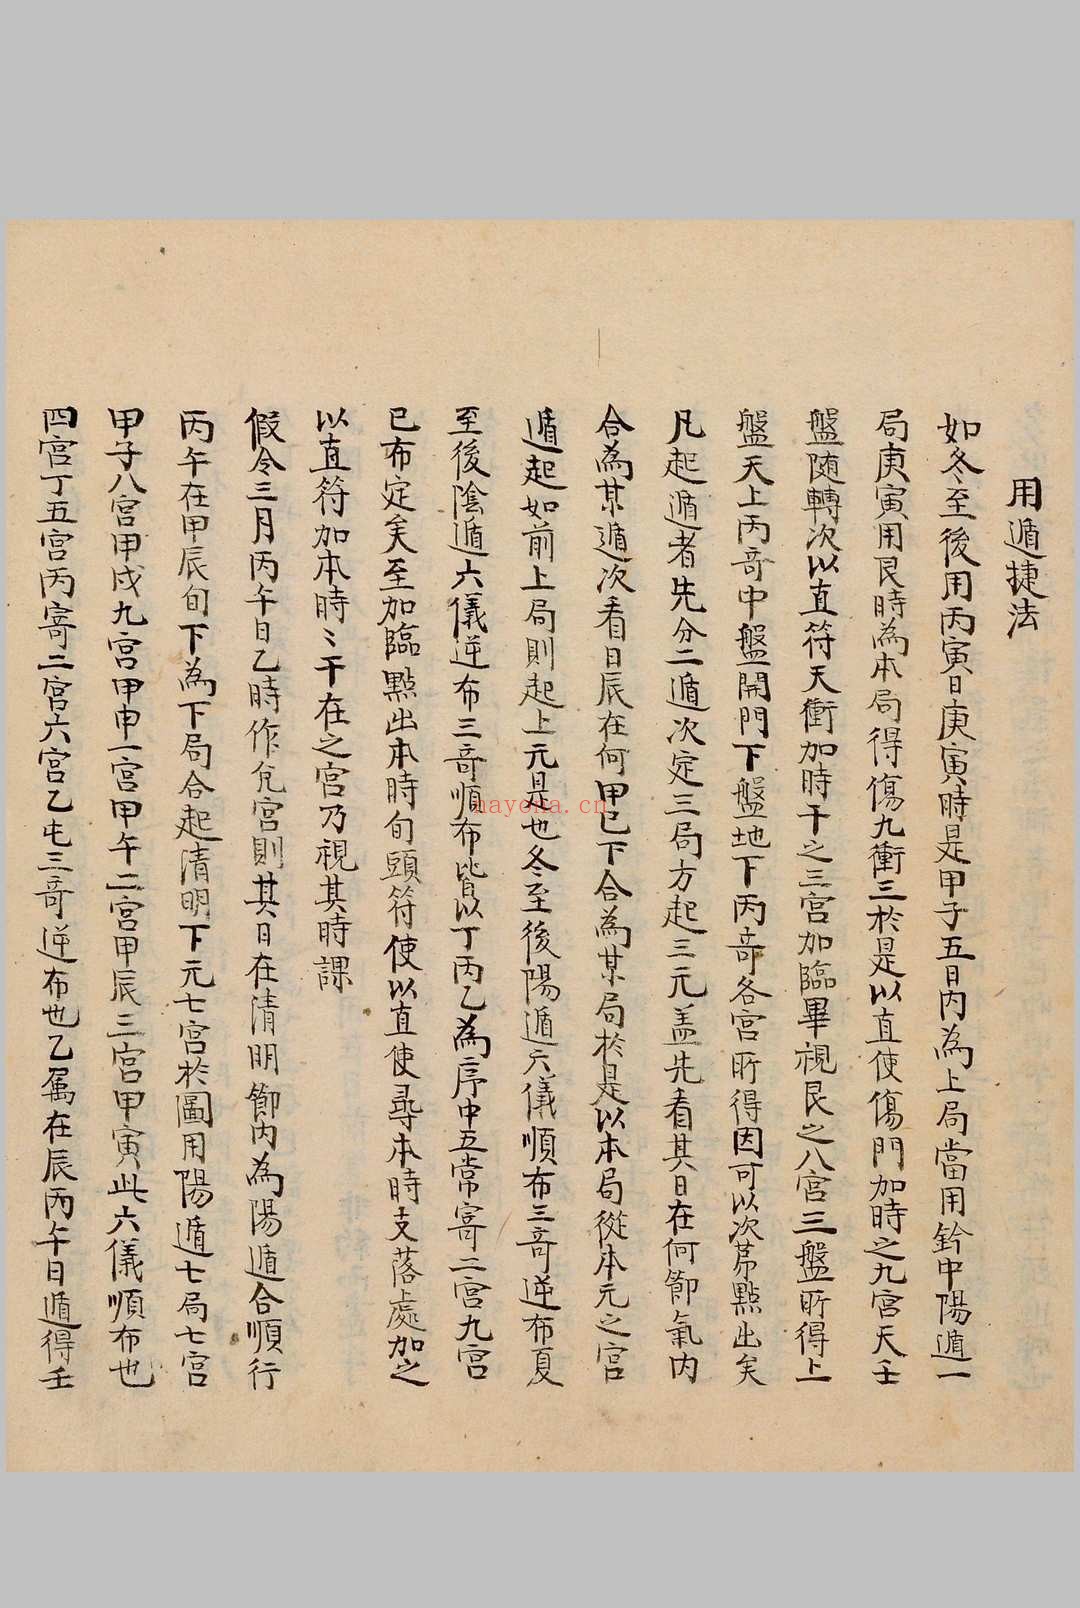 用遁捷法
如冬至後用丙寅日庚寅時是甲子五日内為上局當用鈐中陽遁一
局庚寅用艮時為本局得傷九衝三於是以直使傷門加時之九宫天壬
盤随轉次以直符天衝加時干之三宫加臨畢視艮之八宫三盤所得上
盤天上丙竒中盤開門下盤地下丙竒各宫所得因可以次苐點出矣
凡起遁者先分二遁次定三局方起三元盖先看其日在何節氣内
合為某遁次看日辰在何甲已下合為某局於是以本局從本元之宫
遁起如前上局則起上元是也冬至後陽遁六儀順布三竒逆布夏
至後陰遁六儀逆布三竒順布皆以丁丙乙為序中五常寄二宫九宫
已布定矣至加臨點出本時旬頭符使以直使尋本時支落處加之
以直符加本時〻干在之宫乃視其時課
假令三月丙午日乙時作兊宫則其日在清明節内為陽遁合順行
丙午在甲辰旬下為下局合起清明下元七宫於圖用陽遁七局七宫
甲子八宫甲戌九宫甲申一宫甲午二宫甲辰三宫甲寅此六儀順布也
四宫丁五宫丙寄二宫六宫乙屯三竒逆布也乙属在辰丙午日遁得壬
nayona.cn